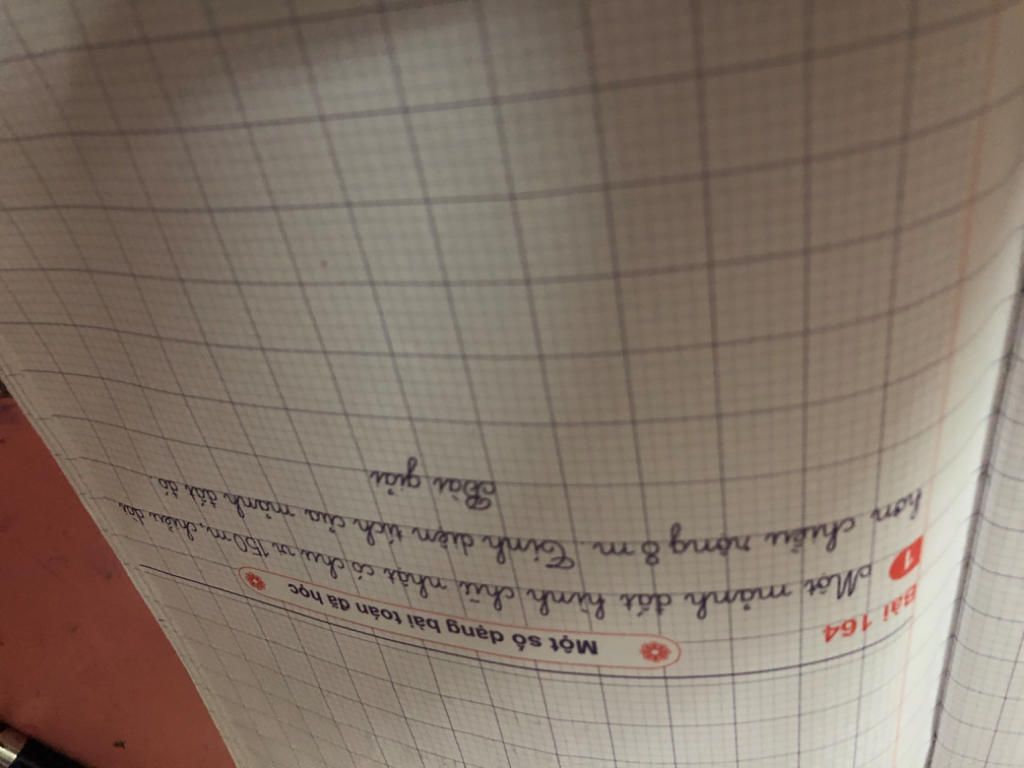 Bài 164
Một số dạng bài toán đã học
1 Một mảnh đất hình chữ nhật có chu vi 150m, chiều dài
hơn chiều rộng 8m. Tính diện tích của mảnh đất đó.
Bài giải